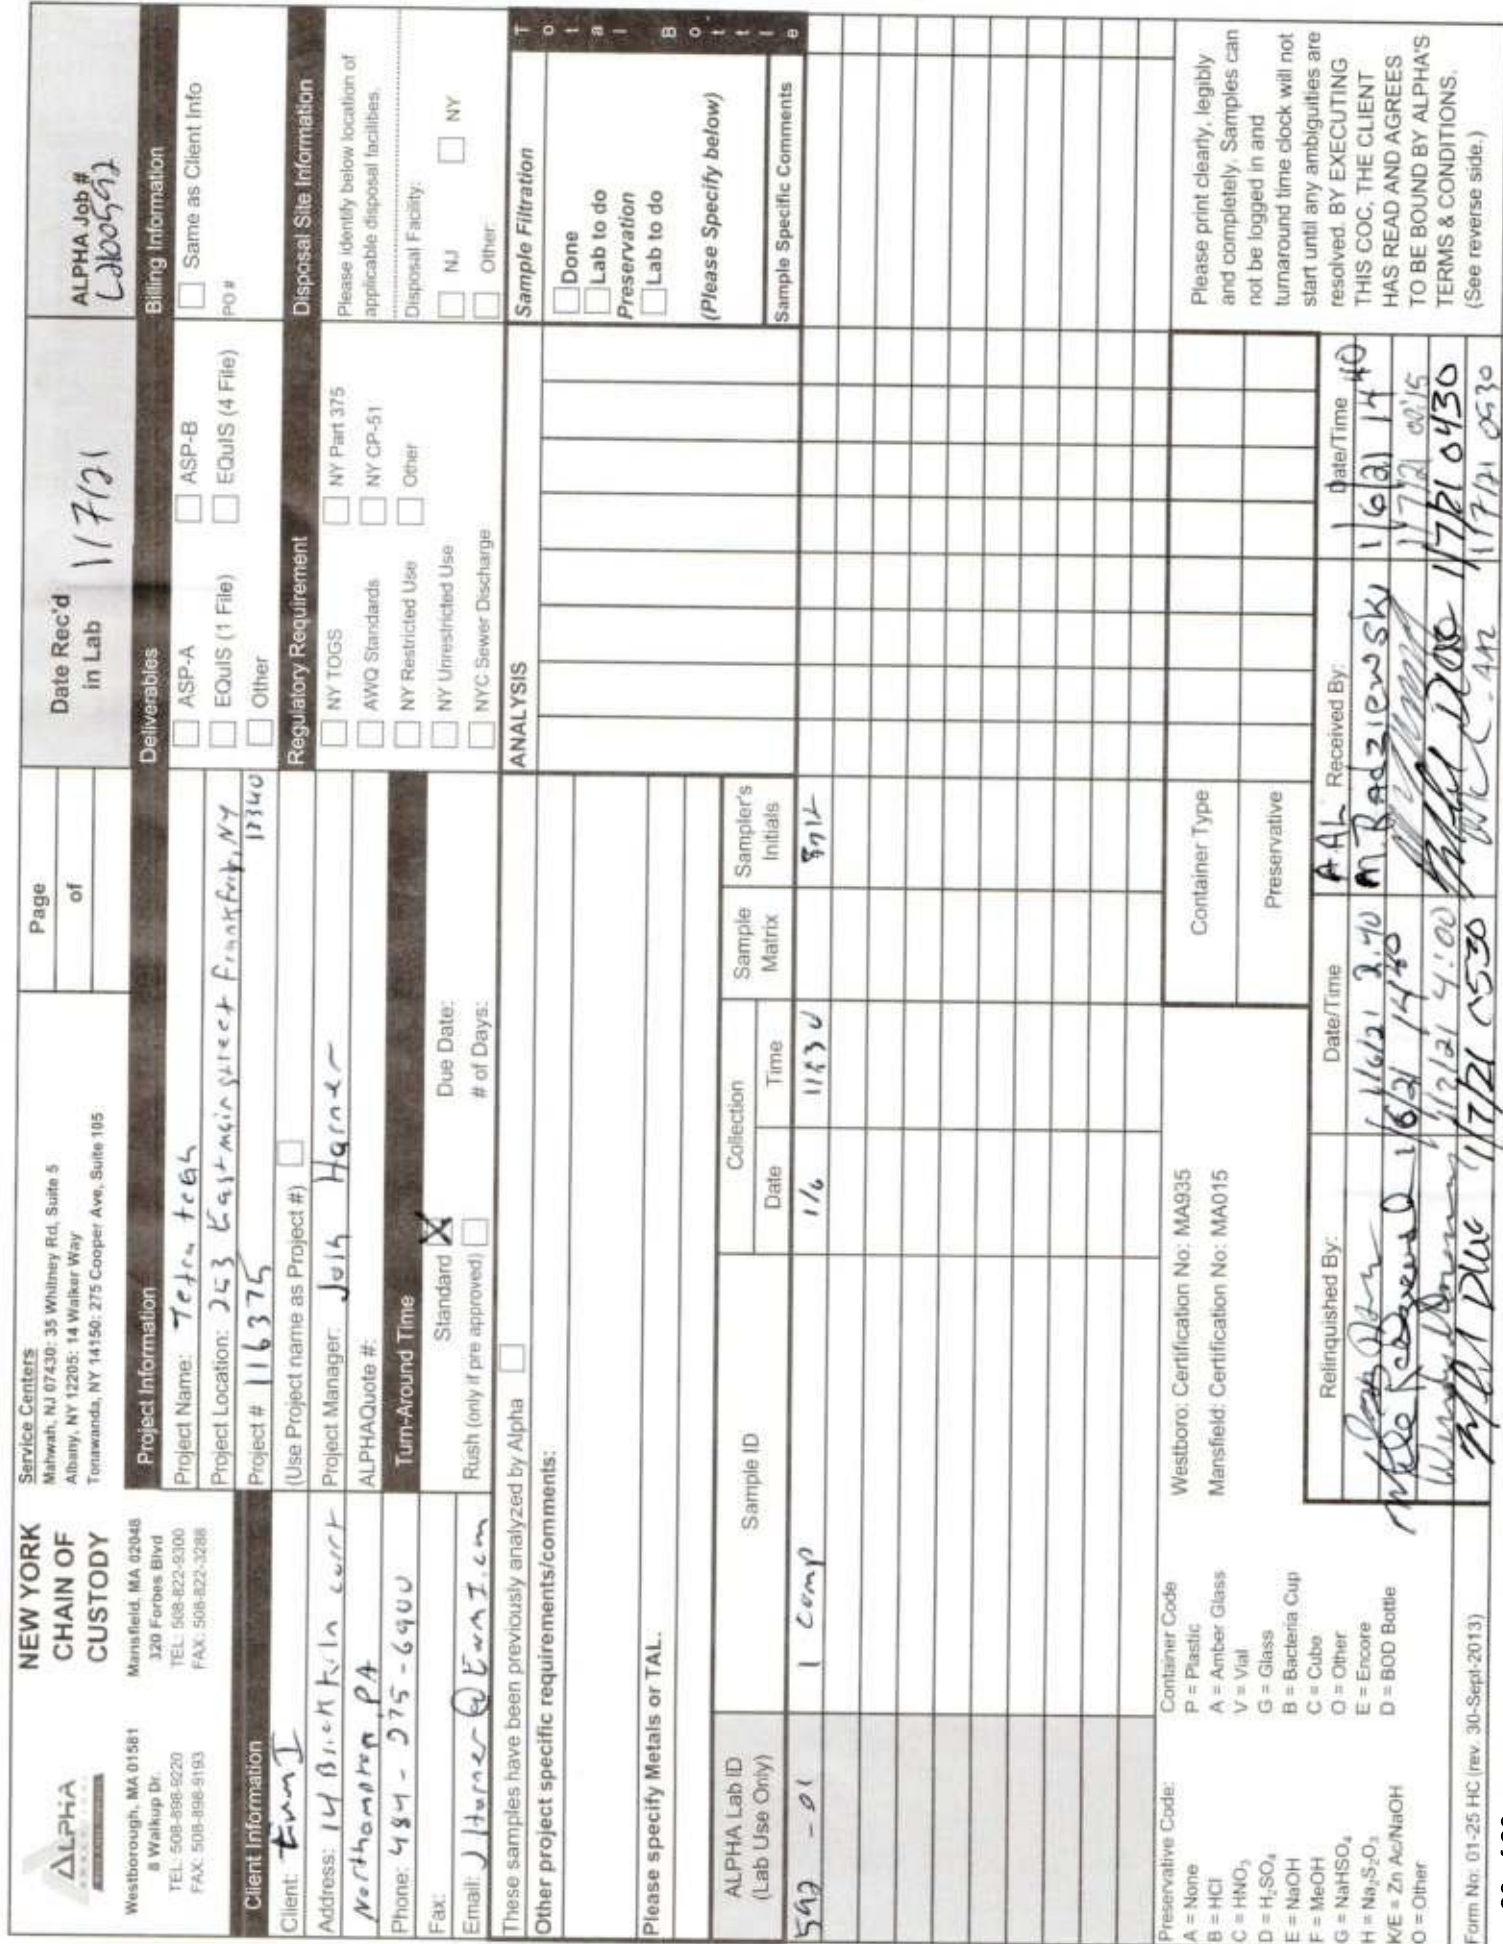 ALPHA
NEW YORK
CHAIN OF
CUSTODY
Westborough, MA 01581
8 Walkup Dr.
TEL: 508-898-9220
FAX: 508-898-9193
Mansfield, MA 02048
320 Forbes Blvd
TEL: 508-822-9300
FAX: 508-822-3288
Service Centers
Mahwah, NJ 07430: 35 Whitney Rd, Suite 5
Albany, NY 12205: 14 Walker Way
Tonawanda, NY 14150: 275 Cooper Ave, Suite 105
Page
of
Date Rec'd
in Lab
1/7/21
ALPHA Job #
L2100592
Client Information
Client: EWMI
Address: 14 Brick Kiln court
Northampton, PA
Phone: 484-275-6900
Fax:
Email: JHarner@EWMI.com
Project Information
Project Name: Tetra tech
Project Location: 253 East main street Frankfort, NY
13340
Project # 116375
(Use Project name as Project #)
Project Manager: Josh Harner
ALPHAQuote #:
Turn-Around Time
Standard X Due Date:
Rush (only if pre approved) # of Days:
Deliverables
ASP-A ASP-B
EQuIS (1 File) EQuIS (4 File)
Other
Regulatory Requirement
NY TOGS NY Part 375
AWQ Standards NY CP-51
NY Restricted Use Other
NY Unrestricted Use
NYC Sewer Discharge
Billing Information
Same as Client Info
PO #
Disposal Site Information
Please identify below location of
applicable disposal facilities.
Disposal Facility:
NJ NY
Other:
These samples have been previously analyzed by Alpha
Other project specific requirements/comments:
Please specify Metals or TAL.
ANALYSIS
Sample Filtration
Done
Lab to do
Preservation
Lab to do
(Please Specify below)
Total Bottle
ALPHA Lab ID
(Lab Use Only)
Sample ID
Collection
Date Time
Sample
Matrix
Sampler's
Initials
Sample Specific Comments
592-01 1 comp 1/6 1130
Preservative Code:
A = None
B = HCl
C = HNO₃
D = H₂SO₄
E = NaOH
F = MeOH
G = NaHSO₄
H = Na₂S₂O₃
K/E = Zn Ac/NaOH
O = Other
Container Code
P = Plastic
A = Amber Glass
V = Vial
G = Glass
B = Bacteria Cup
C = Cube
O = Other
E = Encore
D = BOD Bottle
Westboro: Certification No: MA935
Mansfield: Certification No: MA015
Container Type
Preservative
Please print clearly, legibly
and completely. Samples can
not be logged in and
turnaround time clock will not
start until any ambiguities are
resolved. BY EXECUTING
THIS COC, THE CLIENT
HAS READ AND AGREES
TO BE BOUND BY ALPHA'S
TERMS & CONDITIONS.
(See reverse side.)
Relinquished By: Date/Time AAL Received By: Date/Time
1/6/21 2:40 M. Radziewski 1/6/21 1440
1/6/21 1440 1/7/21 02:15
4:00 1/7/21 0430
1/7/21 0530 1/7/21 0530
Form No: 01-25 HC (rev. 30-Sept-2013)